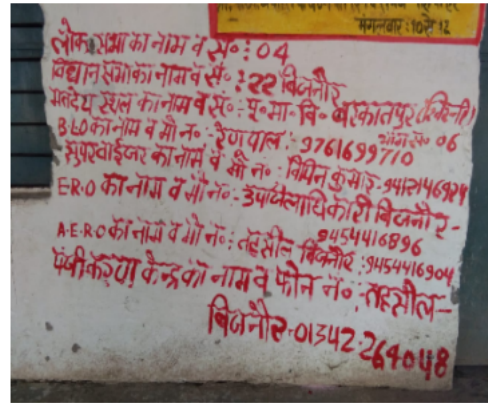 मंगलवार: 10 से 12
लोक सभा का नाम व सं०: 04
विधान सभा का नाम व सं०: 22 बिजनौर
मतदेय स्थल का नाम व सं०- पू० मा० वि०
भाग सं० 06
B.L.O का नाम व मो नं०: रेणपाल: 9761699710
सुपरवाईजर का नाम व मो नं०: विपिन कुमार-
E.R.O का नाम व मो नं०- उपजिलाधिकारी बिजनौर-
9454416896
A.E.R.O का नाम व मो नं०: तहसील बिजनौर: 9454416904
केन्द्र का नाम व फोन नं०:-तहसील-
बिजनौर-01342-264048